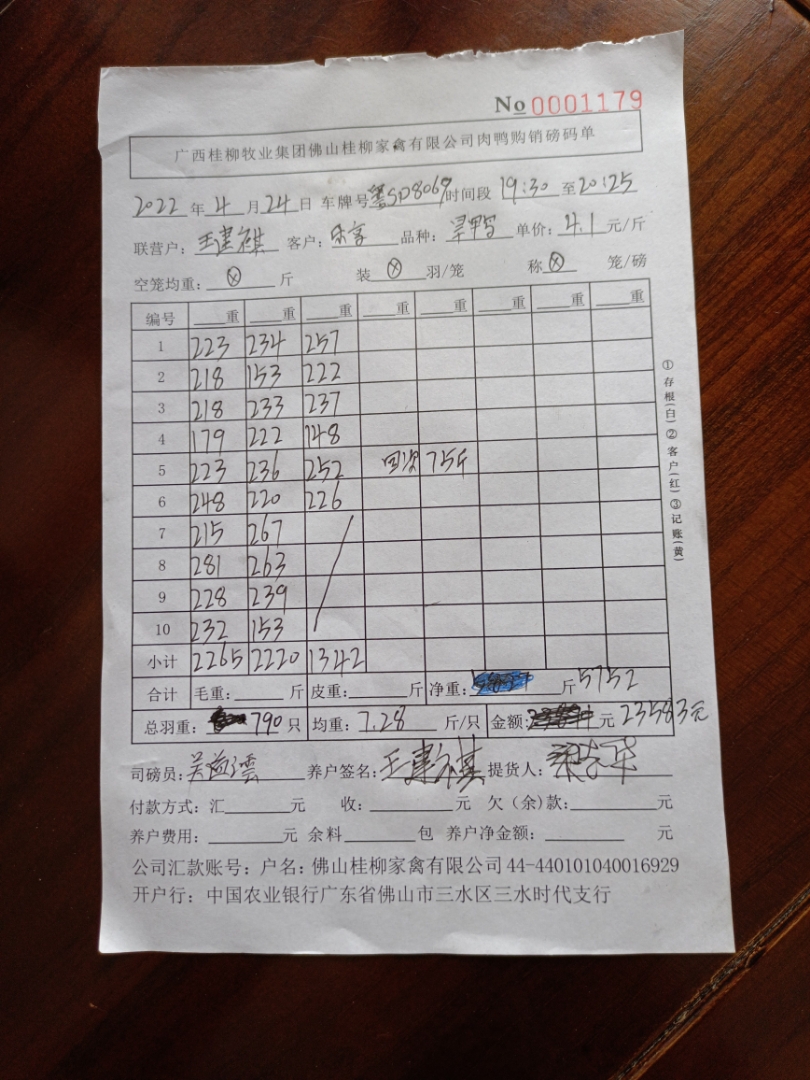 No 0001179
广西桂柳牧业集团佛山桂柳家禽有限公司肉鸭购销磅码单
2022 年 4 月 24 日 车牌号 粤SD8069 时间段 19:30 至 20:25
联营户: 王建祺 客户: 品种: 旱鸭 单价: 4.1 元/斤
空笼均重: ⊗ 斤 装 ⊗ 羽/笼 称 ⊗ 笼/磅
编号 重 重 重 重 重 重 重 重
1 223 234 257
2 218 153 222
3 218 233 237
4 179 222 148
5 223 236 252 回次 75斤
6 248 220 226
7 215 267
8 281 263
9 228 239
10 232 153
小计 2265 2220 1342
合计 毛重: 斤 皮重: 斤 净重: 斤 5752
总羽重: 790 只 均重: 7.28 斤/只 金额: 元 23583元
司磅员: 养户签名: 王建祺 提货人:
付款方式: 汇 元 收: 元 欠(余)款: 元
养户费用: 元 余料 包 养户净金额: 元
公司汇款账号: 户名: 佛山桂柳家禽有限公司 44-440101040016929
开户行: 中国农业银行广东省佛山市三水区三水时代支行
①存根(白)②客户(红)③记账(黄)